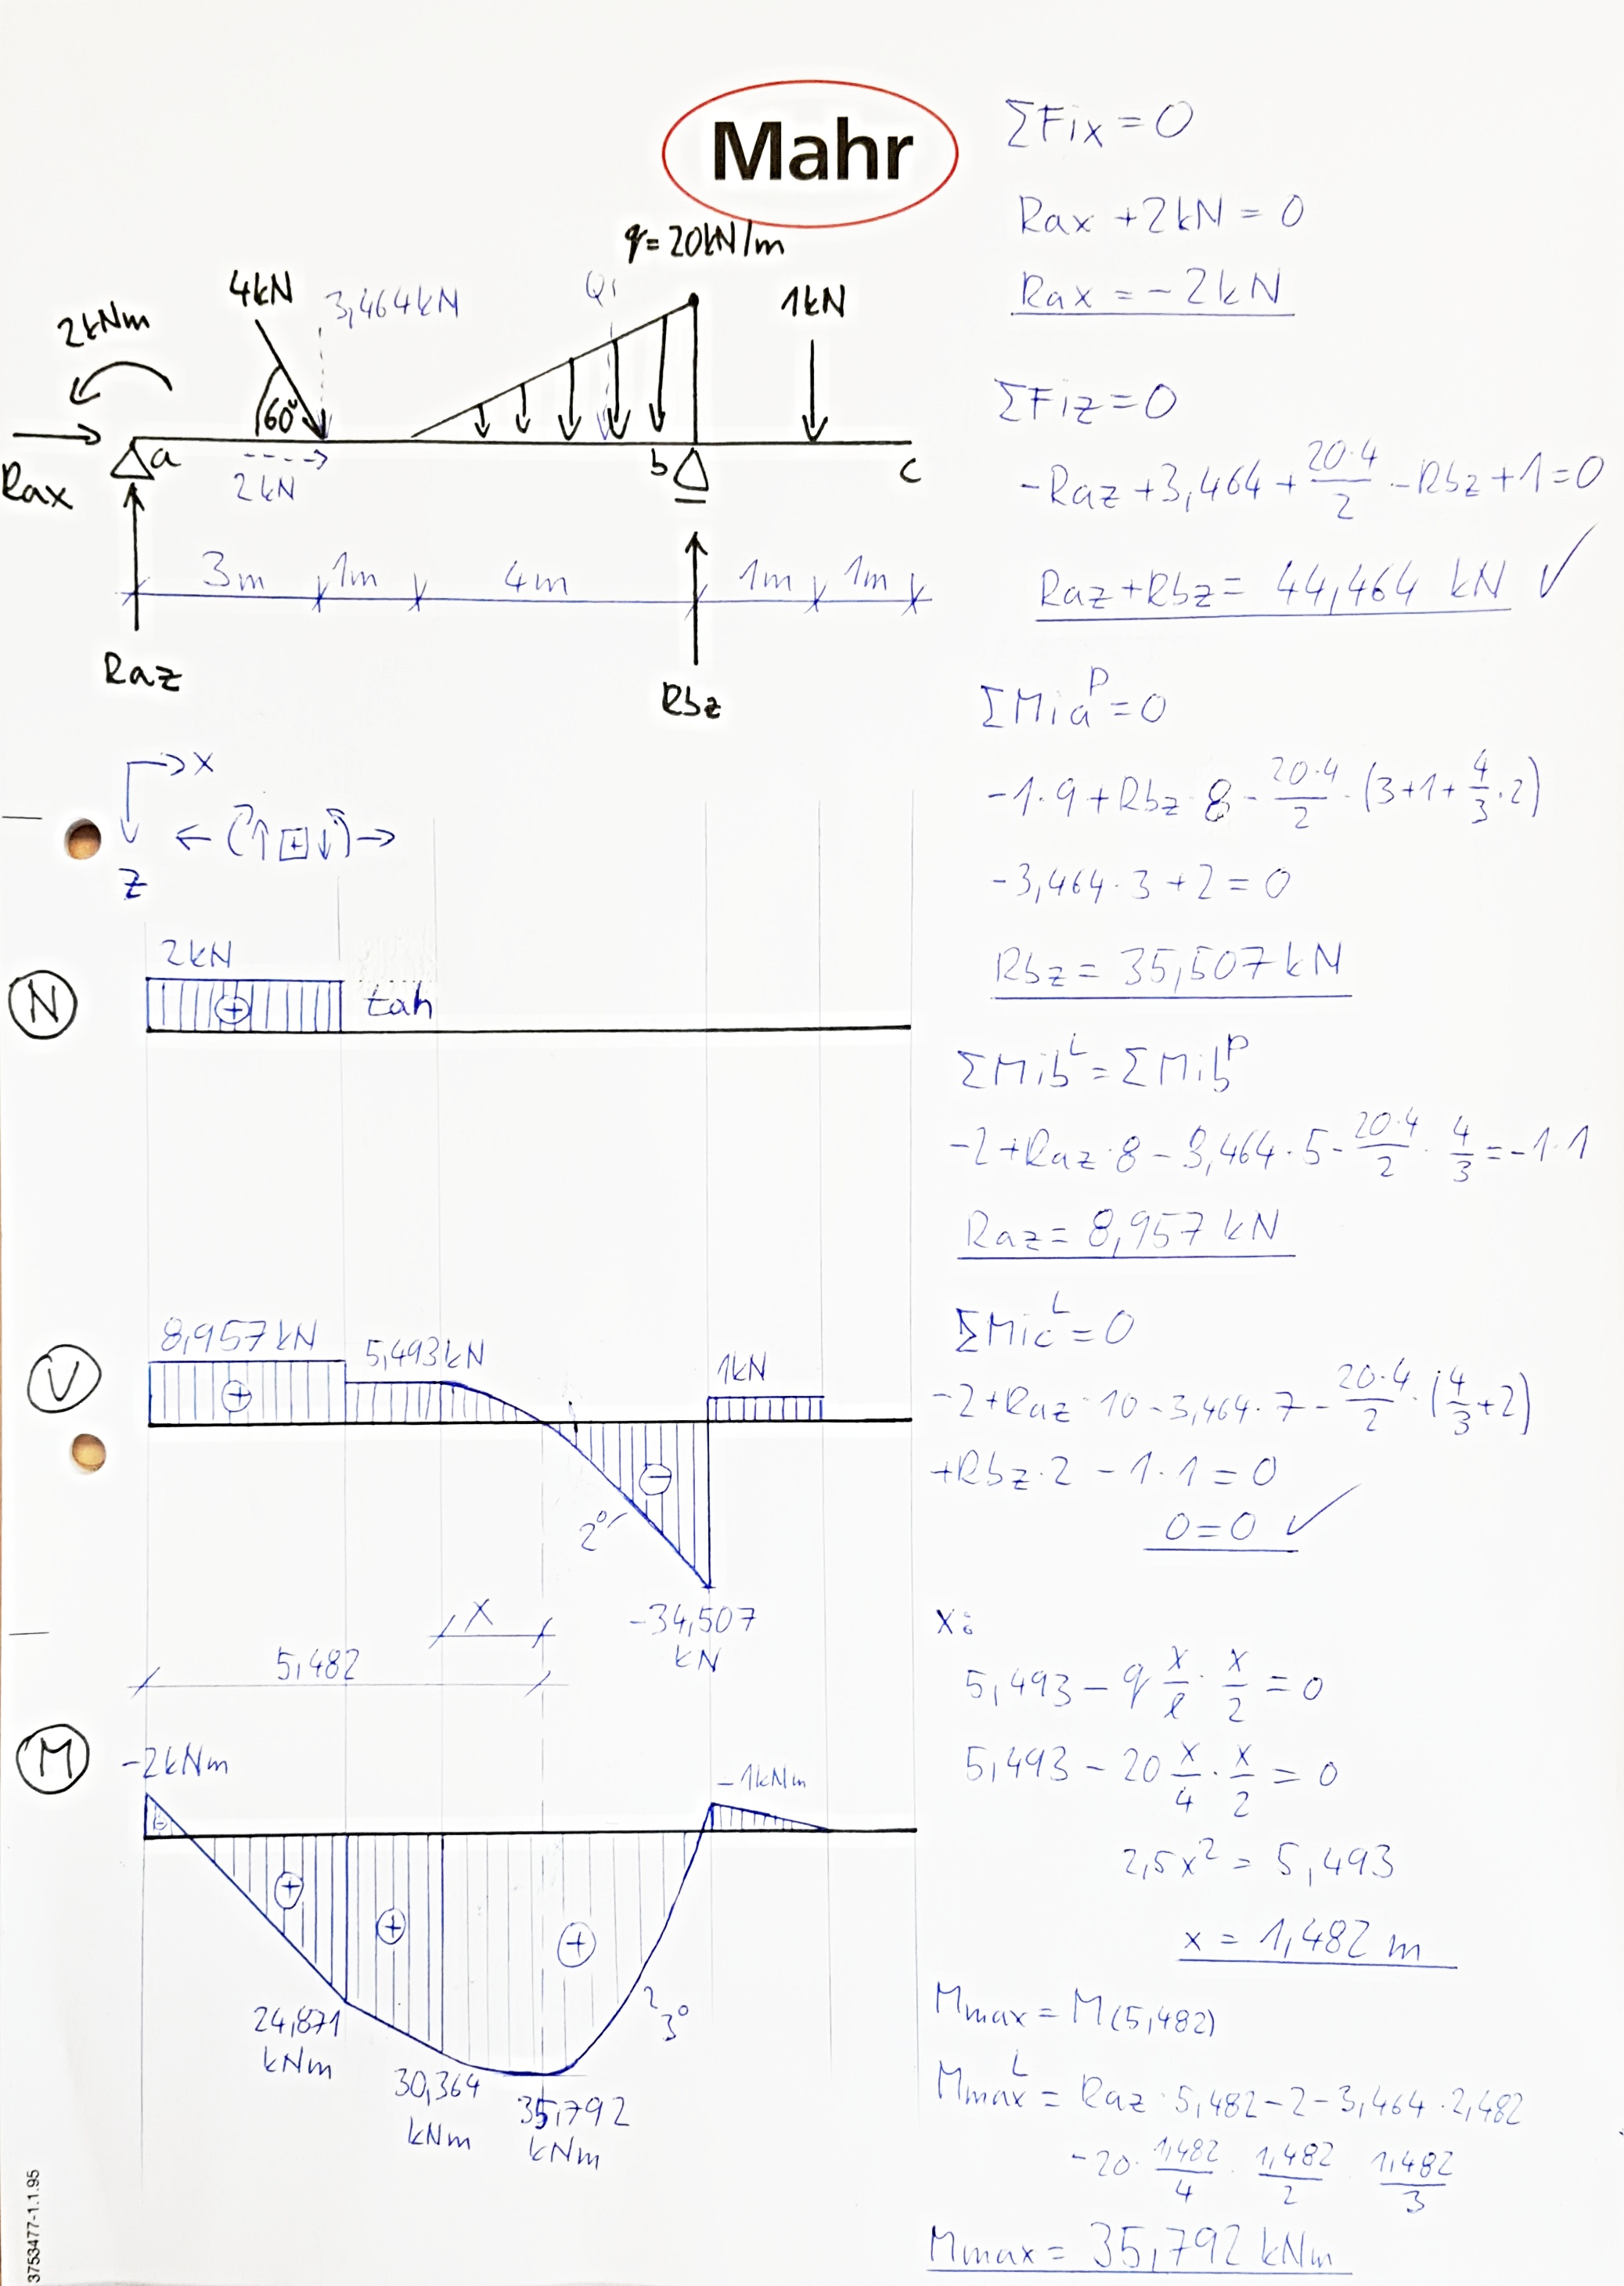 Mahr
q=20kN/m
4kN
3,464kN
Q1
1kN
2kNm
60°
a
b
c
Rax
2kN
3m
1m
4m
1m
1m
Raz
Rbz
x
+
z
N
2kN
+
tah
V
8,957kN
5,493kN
1kN
+
-
2°
-34,507
kN
x
5,482
M
-2kNm
-1kNm
-
+
+
+
24,871
kNm
30,364
kNm
35,792
kNm
3°
ΣFix=0
Rax+2kN=0
Rax=-2kN
ΣFiz=0
-Raz+3,464+20·4/2-Rbz+1=0
Raz+Rbz=44,464 kN ✓
ΣMia^P=0
-1·9+Rbz·8-20·4/2·(3+1+4/3·2)
-3,464·3+2=0
Rbz=35,507kN
ΣMib^L=ΣMib^P
-2+Raz·8-3,464·5-20·4/2·4/3=-1·1
Raz=8,957kN
ΣMic^L=0
-2+Raz·10-3,464·7-20·4/2·(4/3+2)
+Rbz·2-1·1=0
0=0 ✓
x:
5,493-q x/l·x/2=0
5,493-20 x/4·x/2=0
2,5x²=5,493
x=1,482m
Mmax=M(5,482)
Mmax^L=Raz·5,482-2-3,464·2,482
-20·1,482/4·1,482/2·1,482/3
Mmax=35,792kNm
3753477-1.1.95